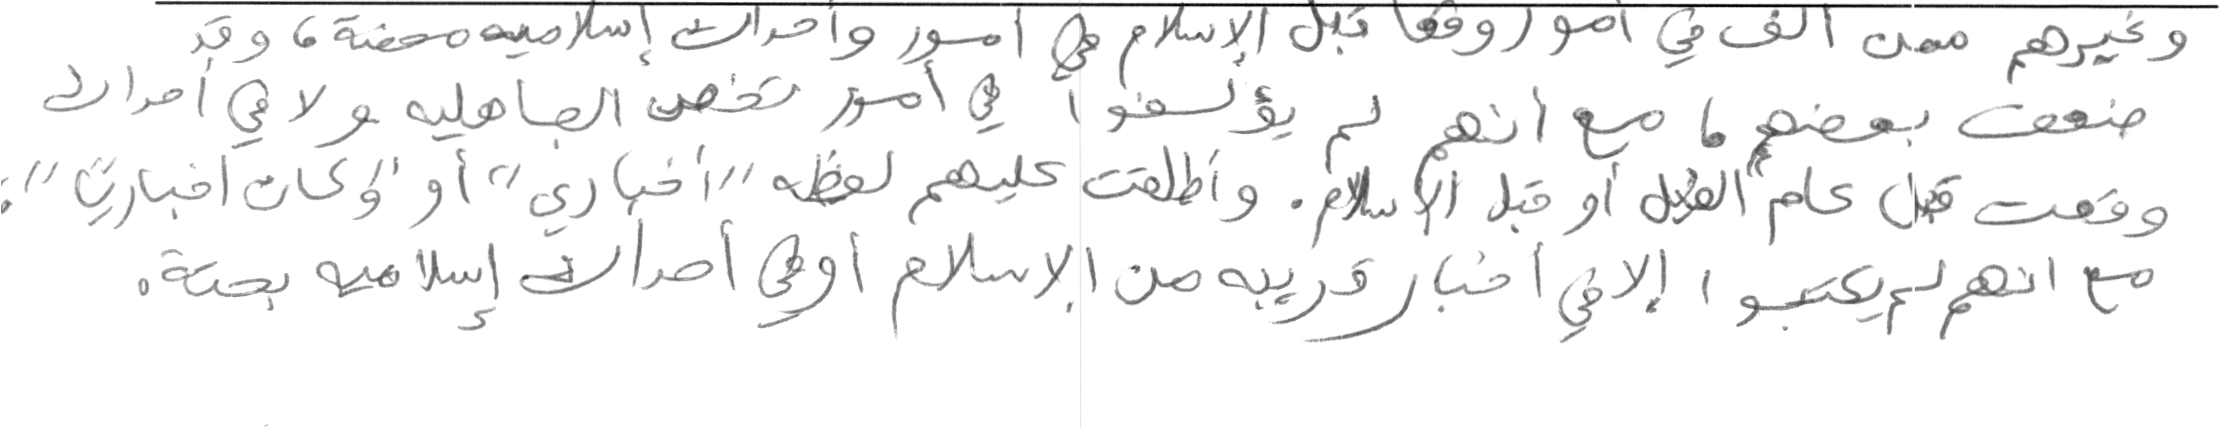 وغيرهم ممن ألف في أمور وقعا قبل الإسلام في أمور وأحداث إسلامية محضة، وقد
ضعف بعضهم، مع أنهم لم يؤلفوا في أمور تخص الجاهليه ولا في أحداث
وقعت قبل عام "الفيل أو قبل الإسلام. وأطلقت عليهم لفظه "أخباري" أو "وكان أخباريًا":
مع انهم لم يكتبوا إلا في أخبار قريبه من الإسلام أو في أحداث إسلاميه بحتة.